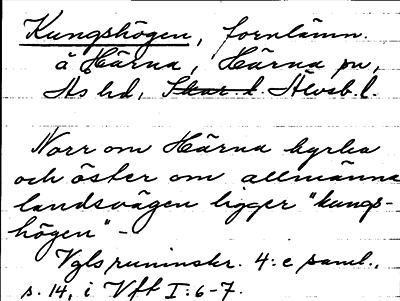 Kungshögen, fornlämn.
å Härna, Härna sn,
Ås hd, Skar. l. Älvsb. l.
Norr om Härna kyrka
och öster om allmänna
landsvägen ligger "kungs-
högen" -
Vgls runinskr. 4:e saml.,
s. 14, i Vft I:6-7.